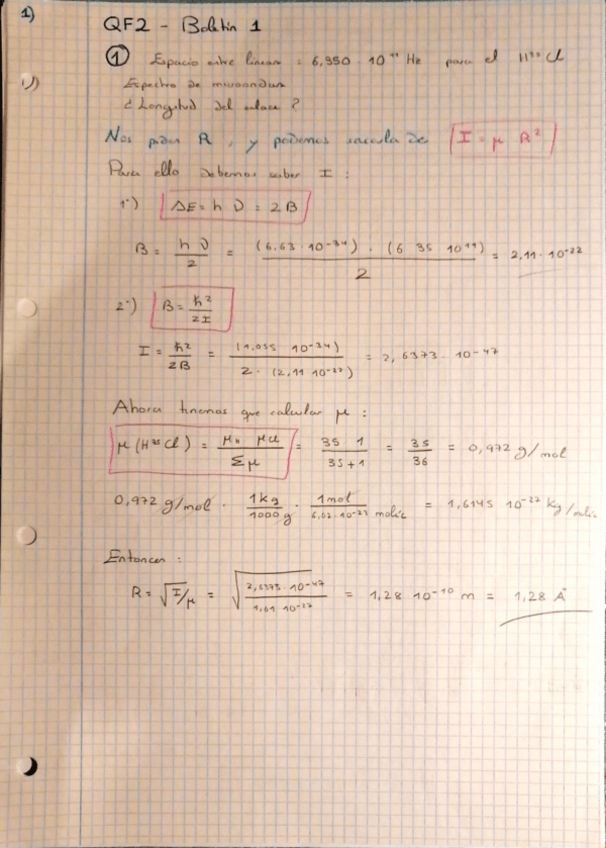 1)
QF2 - Boletín 1
① Espacio entre líneas = 6,350 · 10¹¹ Hz para el H³⁵Cl
Espectro de microondas
¿Longitud del enlace?
Nos piden R, y podemos sacarla de I = μ R²
Para ello debemos saber I :
1º) ΔE = h ν = 2B
B = h ν / 2 = (6,63 · 10⁻³⁴) · (6 35 10¹¹) / 2 = 2,11 · 10⁻²²
2º) B = ħ² / 2I
I = ħ² / 2B = (1,055 10⁻³⁴) / 2 · (2,11 10⁻²²) = 2,6373 · 10⁻⁴⁷
Ahora tenemos que calcular μ :
μ (H³⁵Cl) = μH μCl / Σμ = 35 1 / 35+1 = 35 / 36 = 0,972 g/mol
0,972 g/mol · 1kg / 1000g · 1mol / 6,02·10⁻²³ moléc = 1,6145 10⁻²⁷ kg/moléc
Entonces :
R = √I/μ = √2,6373 · 10⁻⁴⁷ / 1,61 10⁻²⁷ = 1,28 10⁻¹⁰ m = 1,28 Å